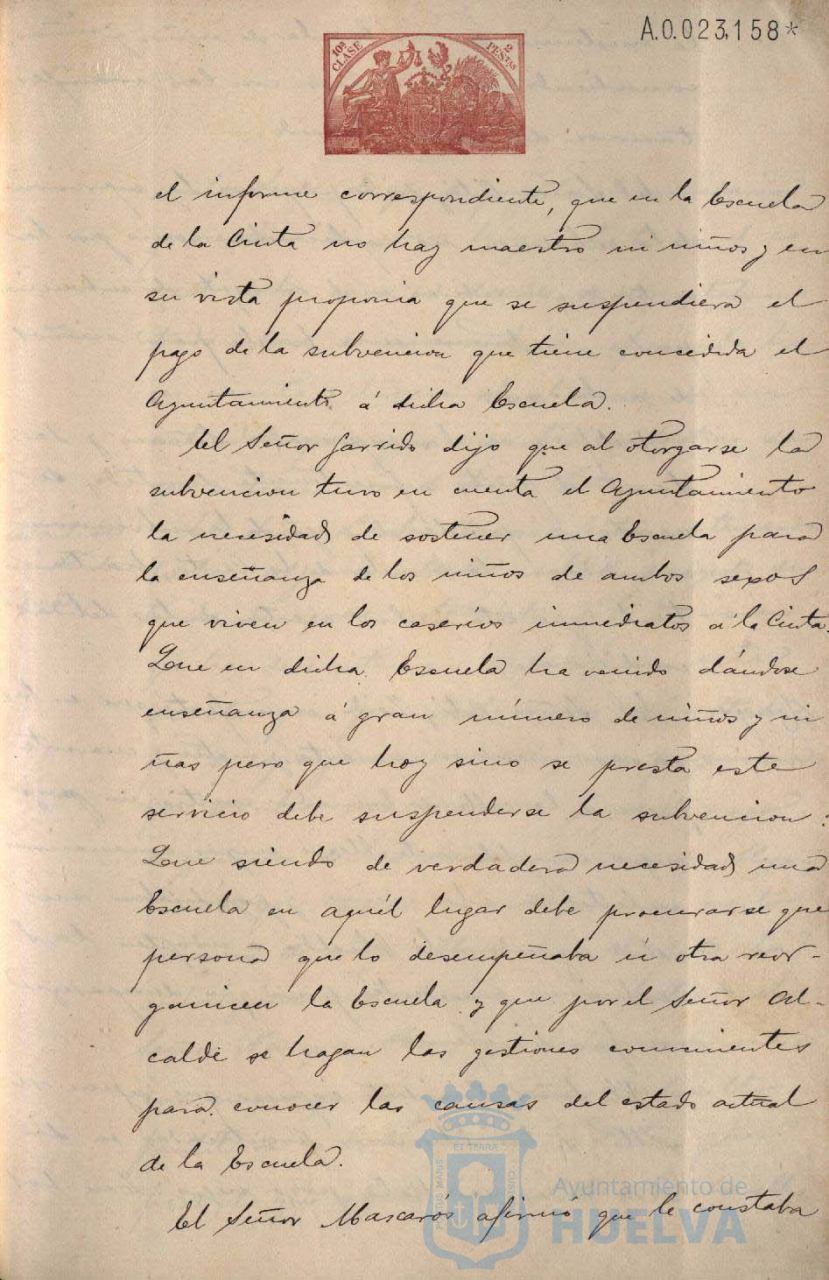 A.0.023,158*
10ª CLASE
2 PESTAS
el informe correspondiente, que en la Escuela
de la Cinta no hay maestro ni niños y en
su vista proponia que se suspendiera el
pago de la subvencion que tiene concedida el
Ayuntamiento á dicha Escuela.
El Señor Garrido dijo que al otorgarse la
subvencion tuvo en cuenta el Ayuntamiento
la necesidad de sostener una Escuela para
la enseñanza de los niños de ambos sexos
que viven en los caserios inmediatos á la Cinta.
Que en dicha Escuela ha venido dándose
enseñanza á gran número de niños y ni
ñas pero que hoy sino se presta este
servicio debe suspenderse la subvencion:
Que siendo de verdadera necesidad una
Escuela en aquél lugar debe procurarse que
persona que lo desempeñaba ú otra reor-
ganicen la Escuela y que por el Señor Al-
calde se hagan las gestiones convenientes
para conocer las causas del estado actual
de la Escuela.
El Señor Mascarós afirmó que le constaba
Ayuntamiento de
HUELVA